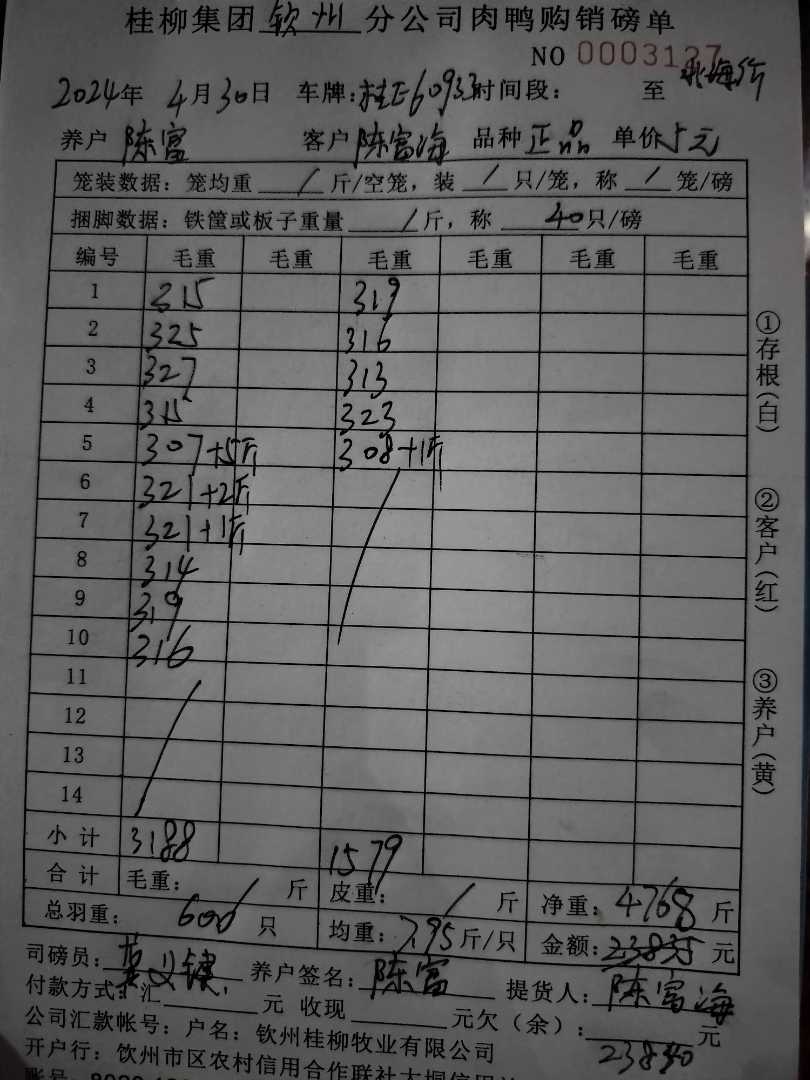 桂柳集团 钦州 分公司肉鸭购销磅单
NO 0003127
2024年 4月30日 车牌：桂E60933 时间段： 至
养户 陈富 客户 陈富海 品种 正品 单价 5元
笼装数据：笼均重 / 斤/空笼，装 / 只/笼，称 / 笼/磅
捆脚数据：铁筐或板子重量 / 斤，称 40只/磅
编号 毛重 毛重 毛重 毛重 毛重 毛重
1 315 319
2 325 316
3 327 313
4 315 323
5 307+5斤 308+1斤
6 321+2斤
7 321+1斤
8 314
9 319
10 316
11
12
13
14
小计 3188 1579
合计 毛重： / 斤 皮重： / 斤 净重：4768斤
总羽重： 600 只 均重：7.95斤/只 金额： 元
司磅员： 养户签名：陈富 提货人：陈富海
付款方式：汇 元 收现 元欠（余）： 元
23840
公司汇款帐号：户名：钦州桂柳牧业有限公司
开户行：钦州市区农村信用合作联社大垌信用
①存根（白）
②客户（红）
③养户（黄）